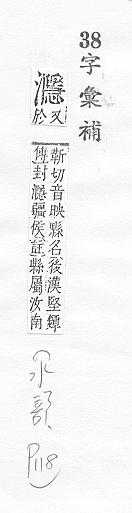 38字彙補
㶏
又於
靳切音映縣名後漢堅鐔
傳封㶏疆侯註縣屬汝南
水部
P118